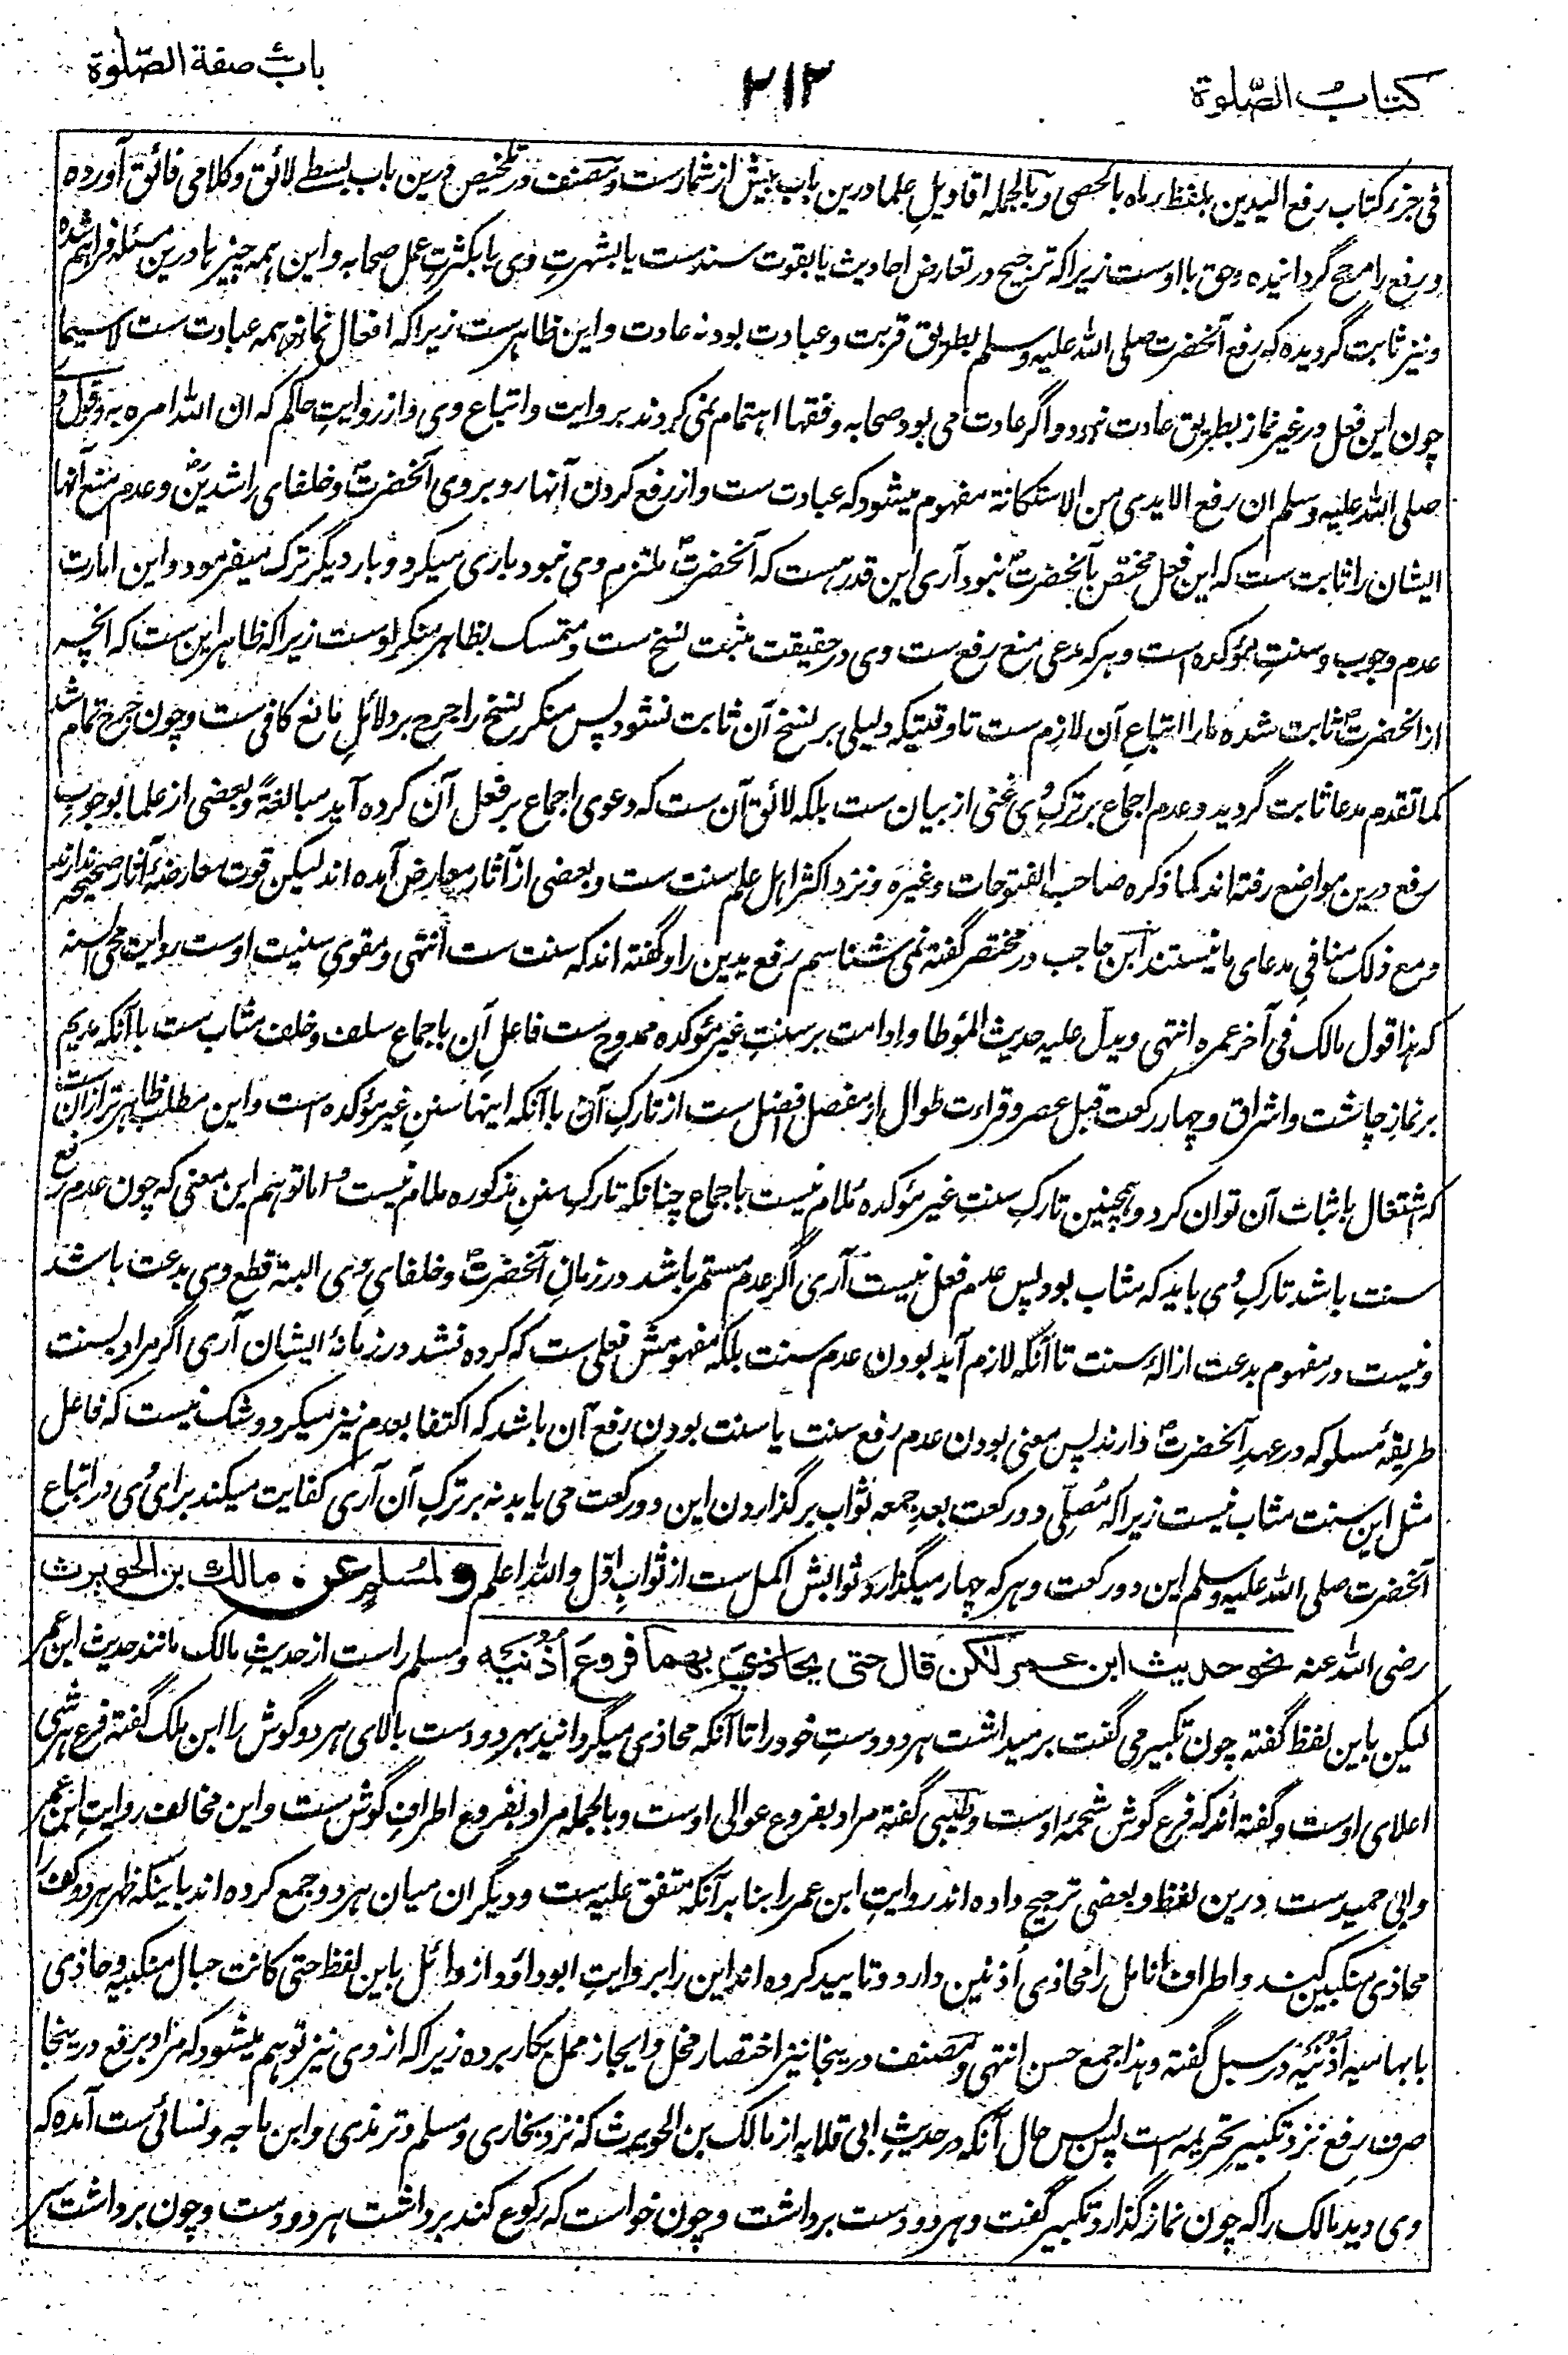 کتاب الصّلوة
۲۱۲
باب صفة الصّلوة
فی جزء کتاب رفع الیدین بلفظ رماه بالحصی و بالجمله اقاویلِ علما درین باب بیش از شمارست و مصنف در تلخیص درین باب بسطے لائق و کلامی فائق آورده
و رفع را مرجح گردانیده وحق با اوست زیرا که ترجیح در تعارض احادیث یا بقوت سندست یا بشهرتِ وی یا بکثرتِ عمل صحابه و این همه چیزها درین مسئله فراهم شده
و نیز ثابت گردیده که رفع آنحضرت صلی الله علیه وسلم بطریق قربت و عبادت بود نه عادت و این ظاهرست زیرا که افعال نماز همه عبادت ست لاسیما
چون این فعل در غیر نماز بطریق عادت نبود و اگر عادت می بود صحابه و فقها اهتمام نمی کردند بروایت و اتباع وی و از روایتِ حاکم که ان الله امره به و قول او
صلی الله علیه وسلم ان رفع الایدی من الاستکانة مفهوم میشود که عبادت ست و از رفع کردن آنها روبروی آنحضرتؐ و خلفای راشدینؓ و عدم منع آنها
ایشان را ثابت ست که این فعل مختص بآنحضرتؐ نبود آری این قدر هست که آنحضرتؐ ملتزم وی نبود باری میکرد و بار دیگر ترک میفرمود و این امارت
عدم وجوب و سنتِ مؤکده است و هر که مدعی منع رفع ست وی در حقیقت مثبت نسخ ست و متمسک بظاهر منکر اوست زیرا که ظاهر این ست که آنچه
از آنحضرتؐ ثابت شده ما را اتباعِ آن لازم ست تا وقتیکه دلیلی بر نسخ آن ثابت نشود پس منکر نسخ را جرح بر دلائلِ مانع کافی ست و چون جرح تمام شد
کما تقدم مدعا ثابت گردید و عدم اجماع بر ترکِ وی غنی از بیان ست بلکه لائق آن ست که دعوی اجماع بر فعل آن کرده آید مبالغةً و بعضی از علما بوجوبِ
رفع درین مواضع رفته اند کما ذکره صاحب الفتوحات وغیره و نزد اکثر اهل علم سنت ست و بعضی از آثار معارض آمده اند لیکن قوت معارضهٔ آثار صحیحه ندارند
و مع ذلک منافی مدعای ما نیستند ابن حاجب در مختصر گفته نمی شناسم رفع یدین را و گفته اند که سنت ست انتهی و مقوی سنیت اوست روایت محی السنه
که هذا قول مالک فی آخر عمره انتهی ویدل علیه حدیث المؤطا و ادامت بر سنتِ غیر مؤکده ممدوح ست فاعلِ آن باجماع سلف و خلف مثاب ست با آنکه مدیم
بر نمازِ چاشت و اشراق و چهار رکعت قبل عصر و قراءت طوال از مفصل افضل ست از تارکِ آن با آنکه اینها سننِ غیر مؤکده است و این مطلب ظاهرتر از آن ست
که اشتغال باثبات آن توان کرد و همچنین تارکِ سنتِ غیر مؤکده ملام نیست باجماع چنانکه تارکِ سننِ مذکوره ملام نیست و اما توهم این معنی که چون عدم رفع
سنت باشد تارکِ وی باید که مثاب بود پس عدم فعل نیست آری اگر عدم مستمر باشد در زمانِ آنحضرتؐ و خلفایِ وی البته قطع وی بدعت باشد
و نیست در مفهوم بدعت ازالهٔ سنت تا آنکه لازم آید بودن عدم سنت بلکه مفهومش فعلی ست که کرده نشد در زمانهٔ ایشان آری اگر مراد بسنت
طریقهٔ مسلوکه در عهدِ آنحضرتؐ دارند پس معنی بودن عدم رفع سنت یا سنت بودن رفع آن باشد که اکتفا بعدم نیز میکرد و شک نیست که فاعل
مثل این سنت مثاب نیست زیرا که مُصلّی دو رکعت بعدِ جمعه ثواب بر گذاردن این دو رکعت می یابد نه بر ترکِ آن آری کفایت میکند برای وی در اتباع
آنحضرت صلی الله علیه وسلم این دو رکعت و هر که چهار میگذارد ثوابش اکمل ست از ثوابِ اول والله اعلم ولمُسلمٍ عن مالك بن الحويرث
رضی الله عنه نحو حدیث ابن عمر لکن قال حتی یحاذیَ بهما فروعَ اُذُنَیه و مسلم راست از حدیثِ مالک مانند حدیث ابن عمر
لیکن باین لفظ گفته چون تکبیر می گفت بر میداشت هر دو دستِ خود را تا آنکه محاذی میگردانید بهر دو دست بالای هر دو گوش را ابن ملک گفته فرع هر شی
اعلای اوست و گفته اند که فرع گوش شحمهٔ اوست و طیبی گفته مراد بفروع عوالی اوست و بالجمله مراد بفروع اطرافِ گوش ست و این مخالف روایتِ ابن عمر
و ابی حمیدست درین لفظ و بعضی ترجیح داده اند روایتِ ابن عمر را بنا بر آنکه متفق علیه ست و دیگران میان هر دو جمع کرده اند باینکه ظهر هر دو کف را
محاذی منکبین کند و اطراف انامل را محاذی اُذنین دارد و تایید کرده اند این را بروایتِ ابوداؤد از وائل باین لفظ حتی کانت حیال منکبیه و حاذی
بابهامیه اُذُنَیه در سبل گفته و هذا جمع حسن انتهی و مصنف درینجا نیز اختصار مخل و ایجاز ممل بکار برده زیرا که از وی نیز توهم میشود که مراد برفع درینجا
صرف رفع نزد تکبیرِ تحریمه است لیس حال آنکه در حدیثِ ابی قلابه از مالک بن الحویرث که نزد بخاری و مسلم و ترمذی و ابن ماجه و نسائی ست آمده که
وی دید مالک را که چون نماز گذارد تکبیر گفت و هر دو دست برداشت و چون خواست که رکوع کند برداشت هر دو دست و چون برداشت سر